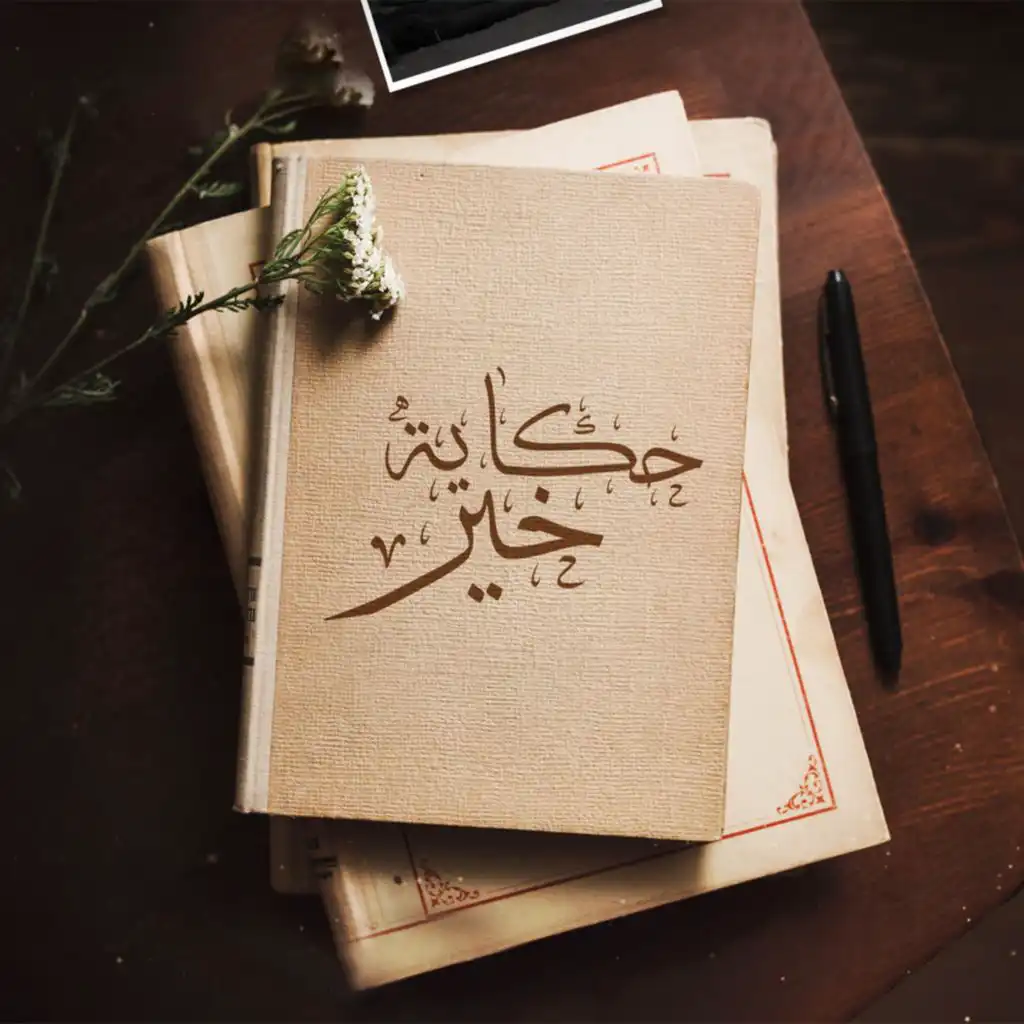 حكاية
خير